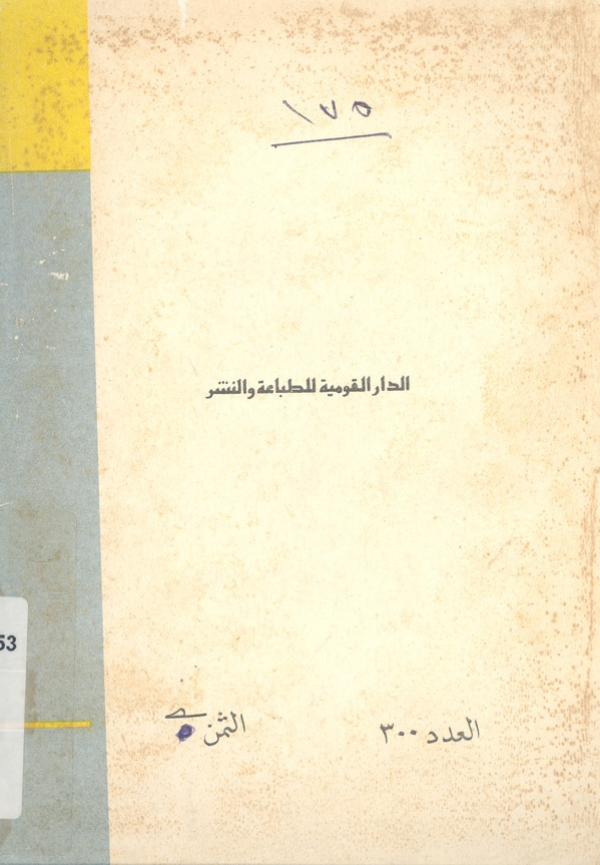 ١٧٥
الدار القومية للطباعة والنشر
53
العدد ٣٠٠ الثمن